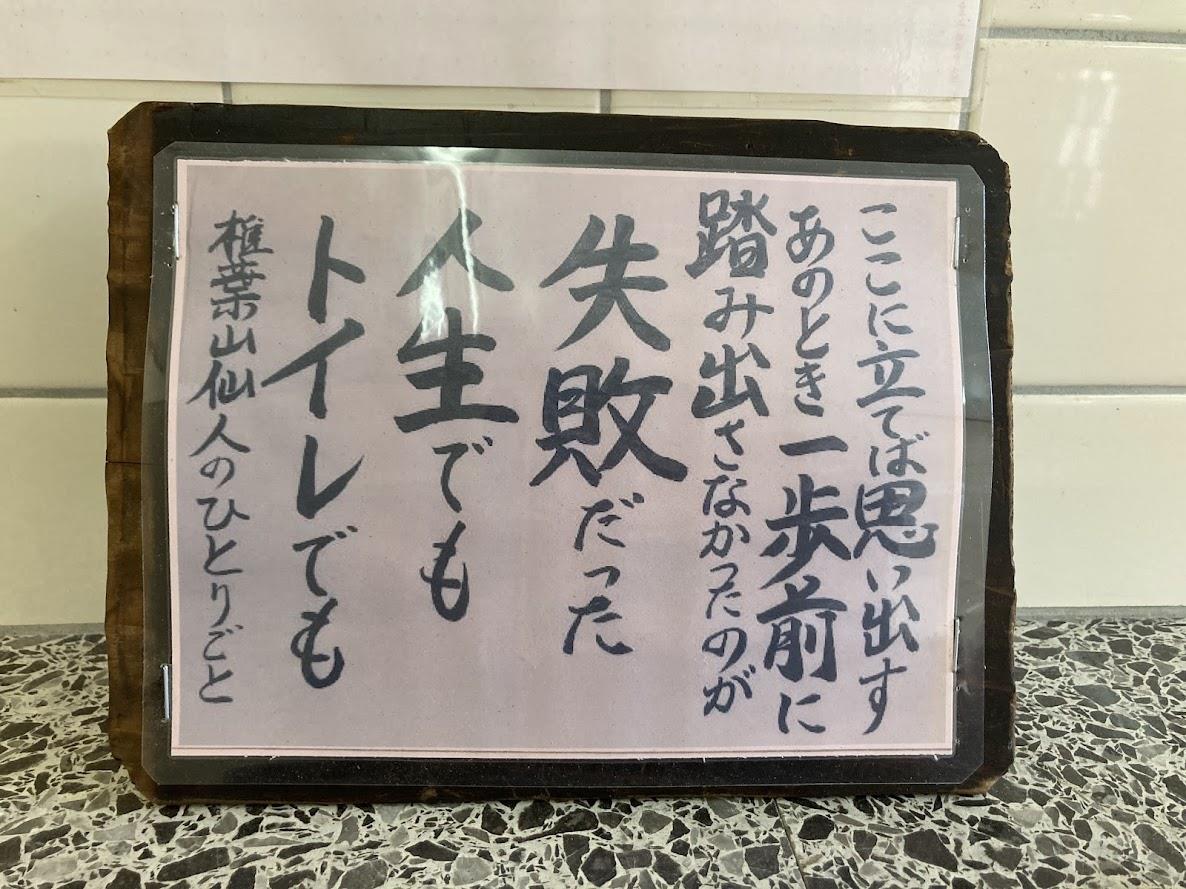 ここに立てば思い出す
あのとき一歩前に
踏み出さなかったのが
失敗だった
人生でも
トイレでも
椎葉山仙人のひとりごと